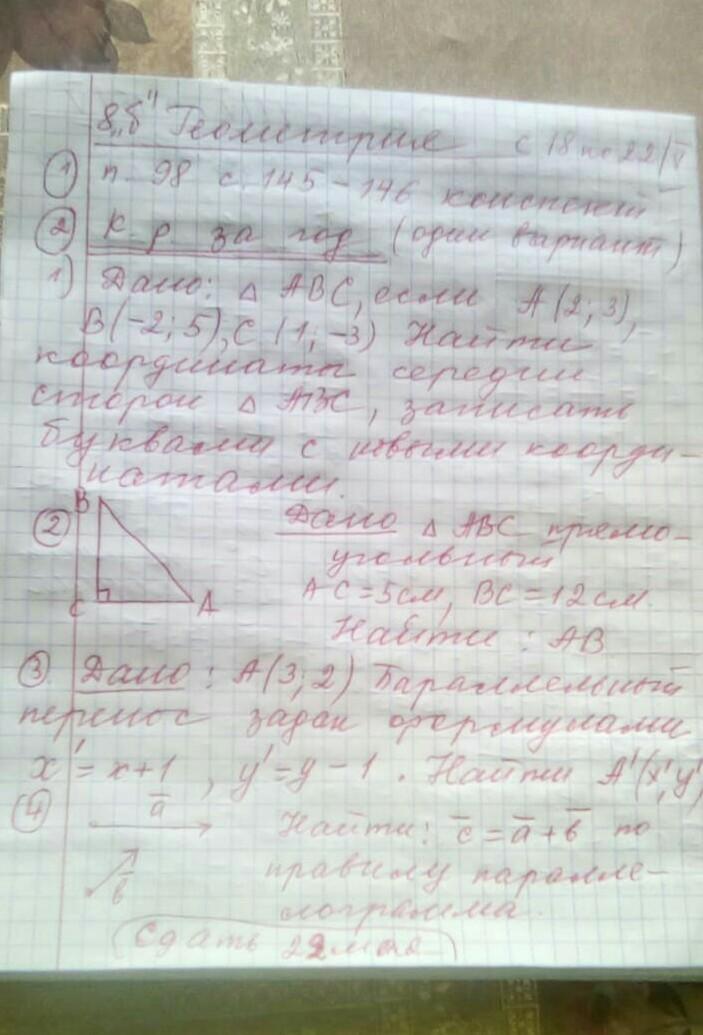 8 „б" Геометрия с 18 по 22/V
① п. 98 с. 145 – 146 конспект
② К. р. за год (один вариант)
1) Дано: △ ABC, если A(2; 3),
B(-2; 5), C (1; -3) Найти
координаты середин
сторон △ ABC, записать
буквами с новыми коорди-
натами.
B
② Дано △ ABC прямо-
угольный
C A AC = 5см, BC = 12см.
Найти : AB
③ Дано : A(3; 2) Параллельный
перенос задан формулами
x' = x+1 , y' = y – 1 . Найти A'(x'; y')
④ a Найти: c = a + b по
b правилу паралле-
лограмма.
Сдать 22 мая